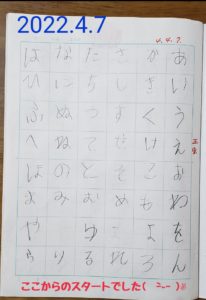 2022.4.7
4.4.7.
あいうえおわをん
かきくけこもよろ
さしすせそめれ
たちつてとむゆる
なにぬねのみり
はひふへほまやら
ここからのスタートでした(